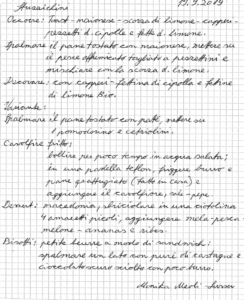 Stuzzichini 19.9.2019
Occorre: Toast - maionese - scorza di limone - capperi -
pezzetti di cipolla e fette d. limone.
Spalmare il pane tostato con maionese, mettere su
il pesce affumicato tagliato a pezzettini e
mischiare con la scorza d. limone.
Decorare: con capperi - fettina di cipolla e fettine
di limone Bio.
Variante:
Spalmare il pane tostato con paté, mettere su
1 pomodorino e cetriolini.
Cavolfiore fritto:
bollire per poco tempo in acqua salata;
in una padella teflon, friggere burro e
pane grattugiato (fatto in casa) e
aggiungere il cavolfiore, sale - pepe
Dessert: macedonia, sbriciolare in una ciotolina
4 amaretti piccoli, aggiungere mela - pesca -
melone - ananas e ribes.
Biscotti: petite beurre a modo di sandwich!
spalmare un lato con puré di castagne e
cioccolato scuro sciolto con poco burro.
Monika